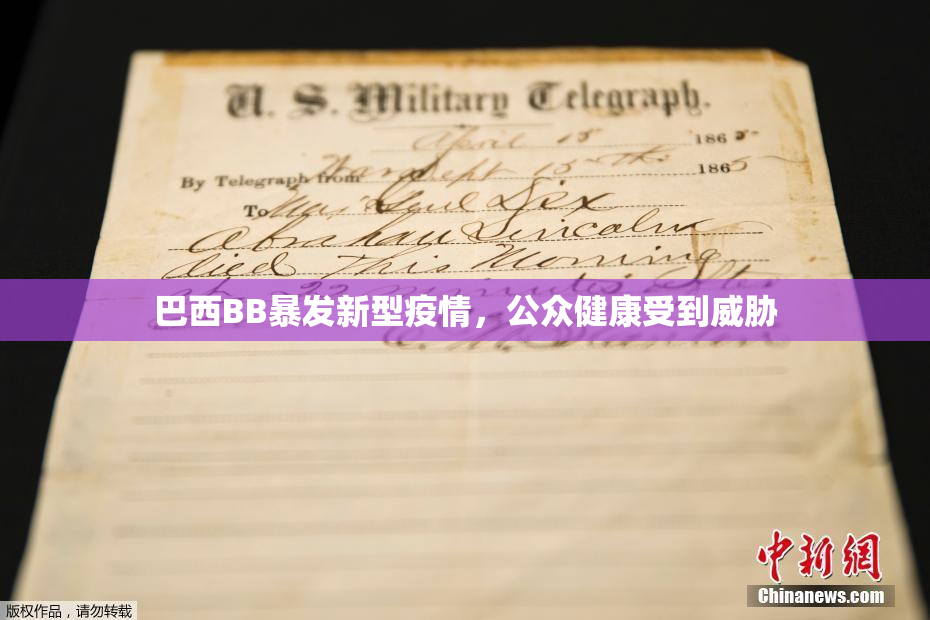 U. S. Military Telegraph.
April 15 1865
By Telegraph from War Dept 15th 1865
To Maj Genl Dix
Abraham Lincoln
died This Morning
at 22 minutes after
巴西BB暴发新型疫情，公众健康受到威胁
E. M. Stanton
中新网
Chinanews.com
版权作品，请勿转载